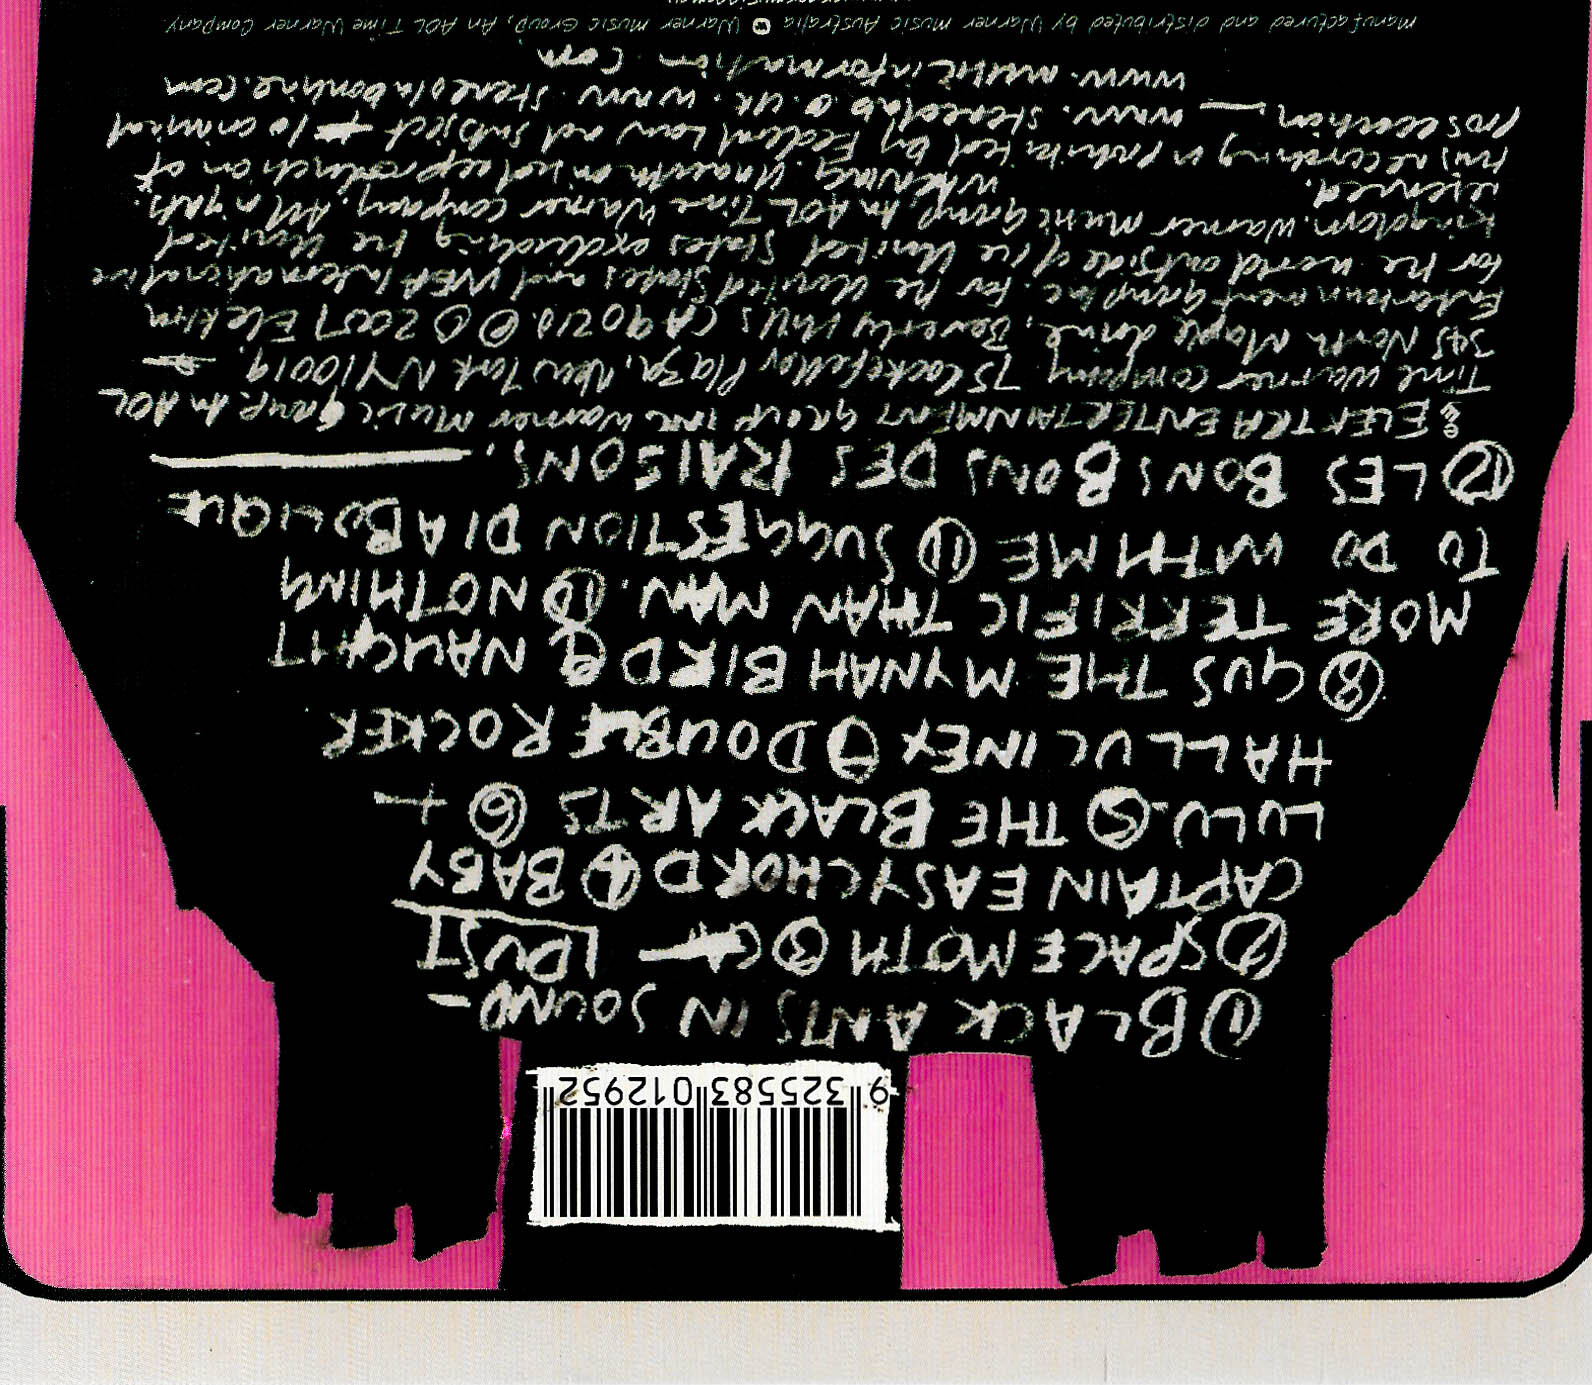 9 325583 012952
① BLACK ANTS IN SOUND-
② SPACE MOTH ③ DUST
CAPTAIN EASYCHORD ④ BABY
LULU. ⑤ THE BLACK ARTS ⑥ +
HALLUCINEX ⑦ DOUBLE ROCKER
⑧ GUS THE MYNAH BIRD ⑨ NAUGHT
MORE TERRIFIC THAN MAN. ⑩ NOTHING
TO DO WITH ME ⑪ SUGGESTION DIABOLIQUE
⑫ LES BONS BONS DES RAISONS.
ELEKTRA ENTERTAINMENT GROUP INC Warner Music Group. An AOL
Time Warner company 75 Rockefeller Plaza, New York NY 10019.
345 North Maple drive, Beverly Hills CA 90210. ℗ © 2001 Elektra
Entertainment Group Inc. for the United States and WEA International Inc
for the world outside of the United States excluding the United
Kingdom. Warner Music Group, An AOL Time Warner Company. All rights.
reserved. WARNING. Unauthorised reproduction of
this recording is prohibited by Federal Law and subject to criminal
prosecution. www.stereolab.co.uk. www.stereolabonline.com
www.musicinformation.com
manufactured and distributed by Warner Music Australia Warner Music Group, An AOL Time Warner Company.